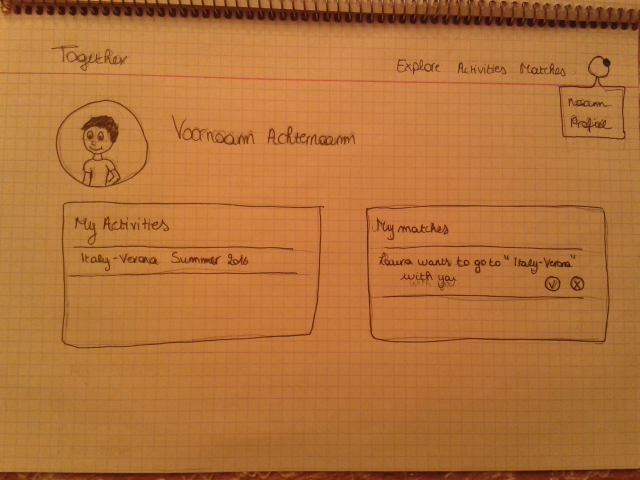 Together
Explore Activities Matches
Naam
Profiel
Voornaam Achternaam
My Activities
Italy-Verona Summer 2016
My matches
Laura wants to go to "Italy-Verona"
with you
V X